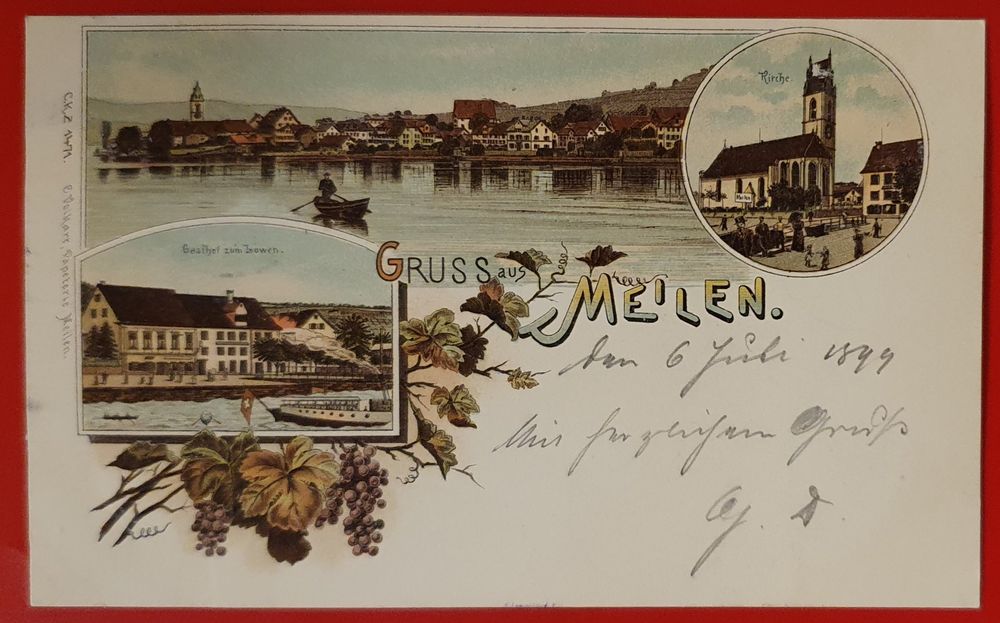 C.K.Z. 1471.
C. Volkart Papeterie Meilen.
Kirche.
Gasthof zum Löwen.
GRUSS aus
MEILEN.
den 6 Juli 1899
Mit herzlichem Gruß
G. D.